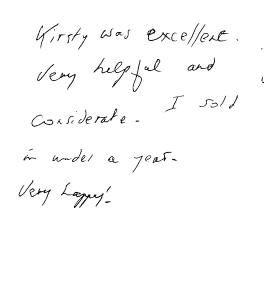 Kirsty was excellent.
Very helpful and
considerate. I sold
in under a year.
Very happy!